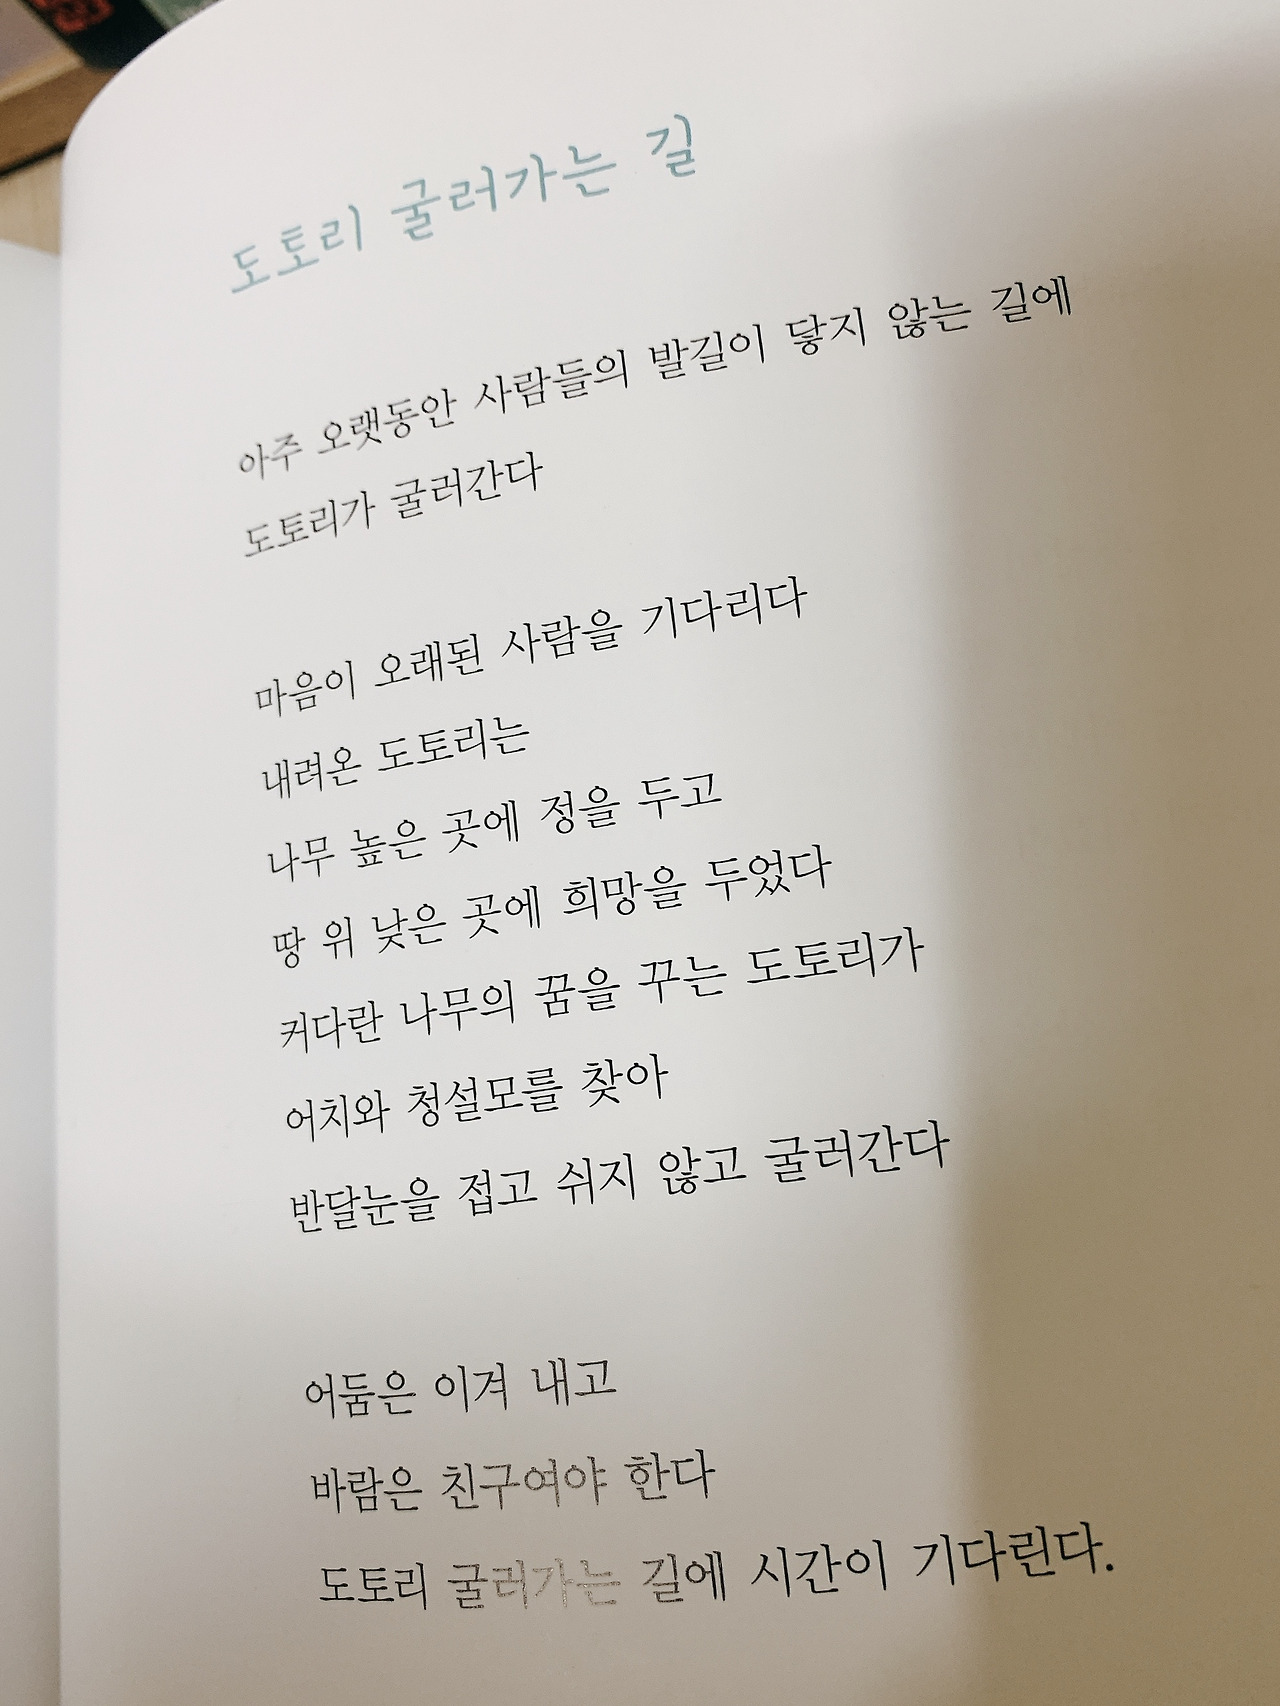 도토리 굴러가는 길
아주 오랫동안 사람들의 발길이 닿지 않는 길에
도토리가 굴러간다
마음이 오래된 사람을 기다리다
내려온 도토리는
나무 높은 곳에 정을 두고
땅 위 낮은 곳에 희망을 두었다
커다란 나무의 꿈을 꾸는 도토리가
어치와 청설모를 찾아
반달눈을 접고 쉬지 않고 굴러간다
어둠은 이겨 내고
바람은 친구여야 한다
도토리 굴러가는 길에 시간이 기다린다.